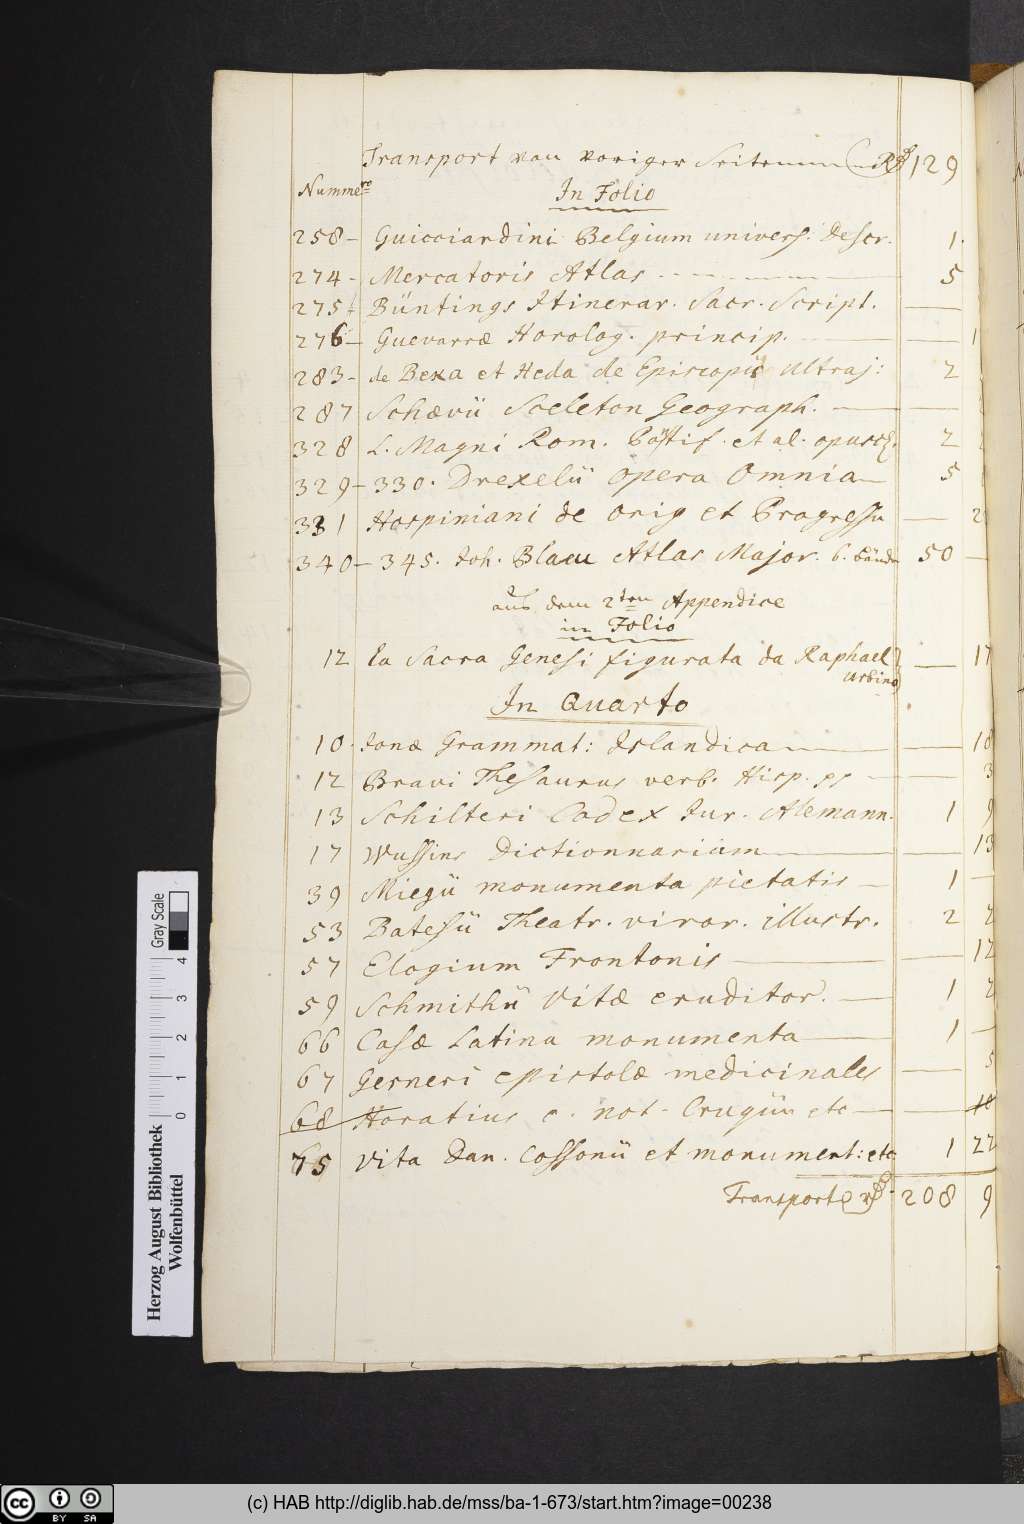 Transport von voriger Seiten Rthlr 129
Nummero
In Folio
258 – Guicciardini Belgium univers. Descr. 1.
274 – Mercatoris Atlas 5
275 Büntings Itinerar. Sacr. Script. —
276 – Guevarræ Horolog. princip. — 1
283 – de Beka et Heda de Episcopis Ultraj: 2
287 Schævii Sceleton Geograph. —
328 L. Magni Rom. Pontif. et al. opusc. 2
329 – 330. Drexelii opera Omnia — 5
331 Hospiniani de orig et Progressu — 2
340 – 345. Joh. Blaeu Atlas Major. 6. bände 50 —
aus dem 2ten Appendice
in Folio
12 la Sacra Genesi figurata da Raphael — 17
Urbino
In Quarto
10. Jonæ Grammat: Islandica — 18
12 Bravi Thesaurus verb. Hisp. — 3
13 Schilteri Codex Jur. Alemann. 1 9
17 Wussins Dictionnarium — 13
39 Miegii monumenta pietatis — 1 —
53 Batesii Theatr. viror. illustr. 2 2
57 Elogium Frontonis — 12
59 Schmithii Vitæ eruditor. — 1 2
66 Casæ Latina monumenta — 1 —
67 Gesneri epistolæ medicinales — 5
68 Horatius c. not. Cruqüi etc — 18
75 Vita Dan. Cossonii et monument: etc 1 22
Transport Rthlr 208 9
Gray Scale
0 1 2 3 4
Herzog August Bibliothek
Wolfenbüttel
cc BY SA
(c) HAB http://diglib.hab.de/mss/ba-1-673/start.htm?image=00238